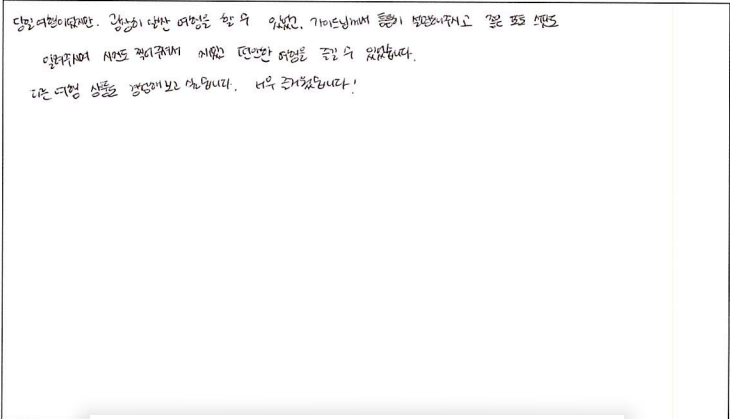 당일여행이었지만, 굉장히 알찬 여행을 할 수 있었고, 가이드님께서 틈틈이 설명해주시고 좋은 포토 스팟도
알려주시며 사진도 찍어주셔서 재밌고 편안한 여행을 즐길 수 있었습니다.
다른 여행 상품도 경험해보고 싶습니다. 너무 즐거웠습니다!